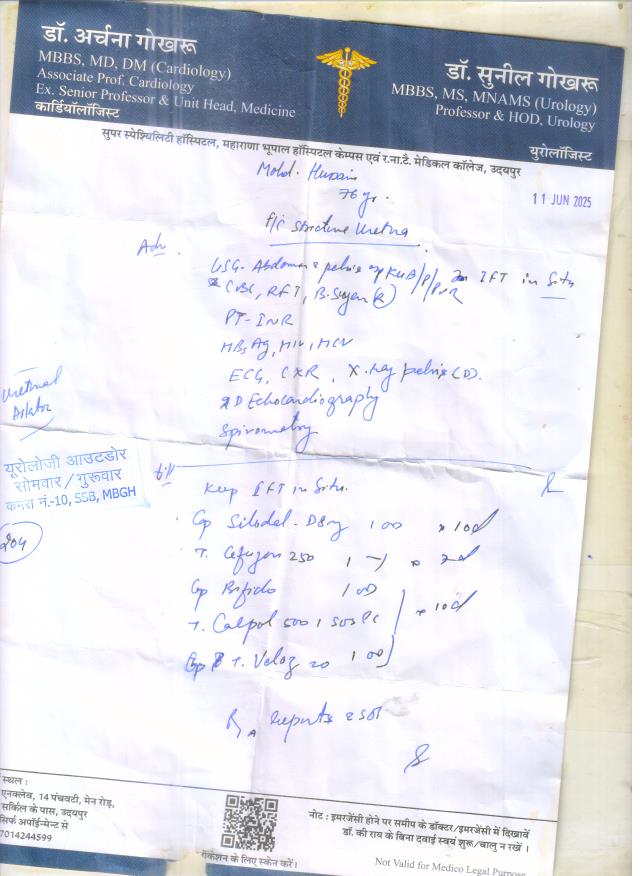 डॉ. अर्चना गोखरू
MBBS, MD, DM (Cardiology)
Associate Prof. Cardiology
Ex. Senior Professor & Unit Head, Medicine
कार्डियॉलॉजिस्ट
डॉ. सुनील गोखरू
MBBS, MS, MNAMS (Urology)
Professor & HOD, Urology
यूरोलॉजिस्ट
सुपर स्पेश्यिलिटी हॉस्पिटल, महाराणा भूपाल हॉस्पिटल केम्पस एवं र.ना.टै. मेडिकल कॉलेज, उदयपुर
Mohd. Hussain
76 yr.
11 JUN 2025
f/c stricture Uretha
Adv.
USG. Abdomen & pelvis KUB/P/PVR IFT in Situ
CBC, RFT, B. Sugar (R)
PT-INR
HBsAg, HIV, HCV
ECG, CXR, X-ray pelvis (D).
2D Echocardiography
Spirometry
Urethral
Dilator
यूरोलोजी आउटडोर
सोमवार/गुरूवार
कमरा नं.-10, SSB, MBGH
204
Keep IFT in Situ.
Cap Silodal-D8mg 1 OD x 10d
T. 250 1 - 1 x 7d
Cap Bifido 1 OD
T. Calpol 500 1 SOS x 10d
T. Veloz 20 1 OD
Reports
स्थल :
एनक्लेव, 14 पंचवटी, मेन रोड़,
सर्किल के पास, उदयपुर
सिर्फ अपॉईन्मेन्ट से
7014244599
लोकेशन के लिए स्केन करें।
नोट : इमरजेंसी होने पर समीप के डॉक्टर/इमरजेंसी में दिखावें
डॉ. की राय के बिना दवाई स्वयं शुरू/चालु न रखें।
Not Valid for Medico Legal Purpose